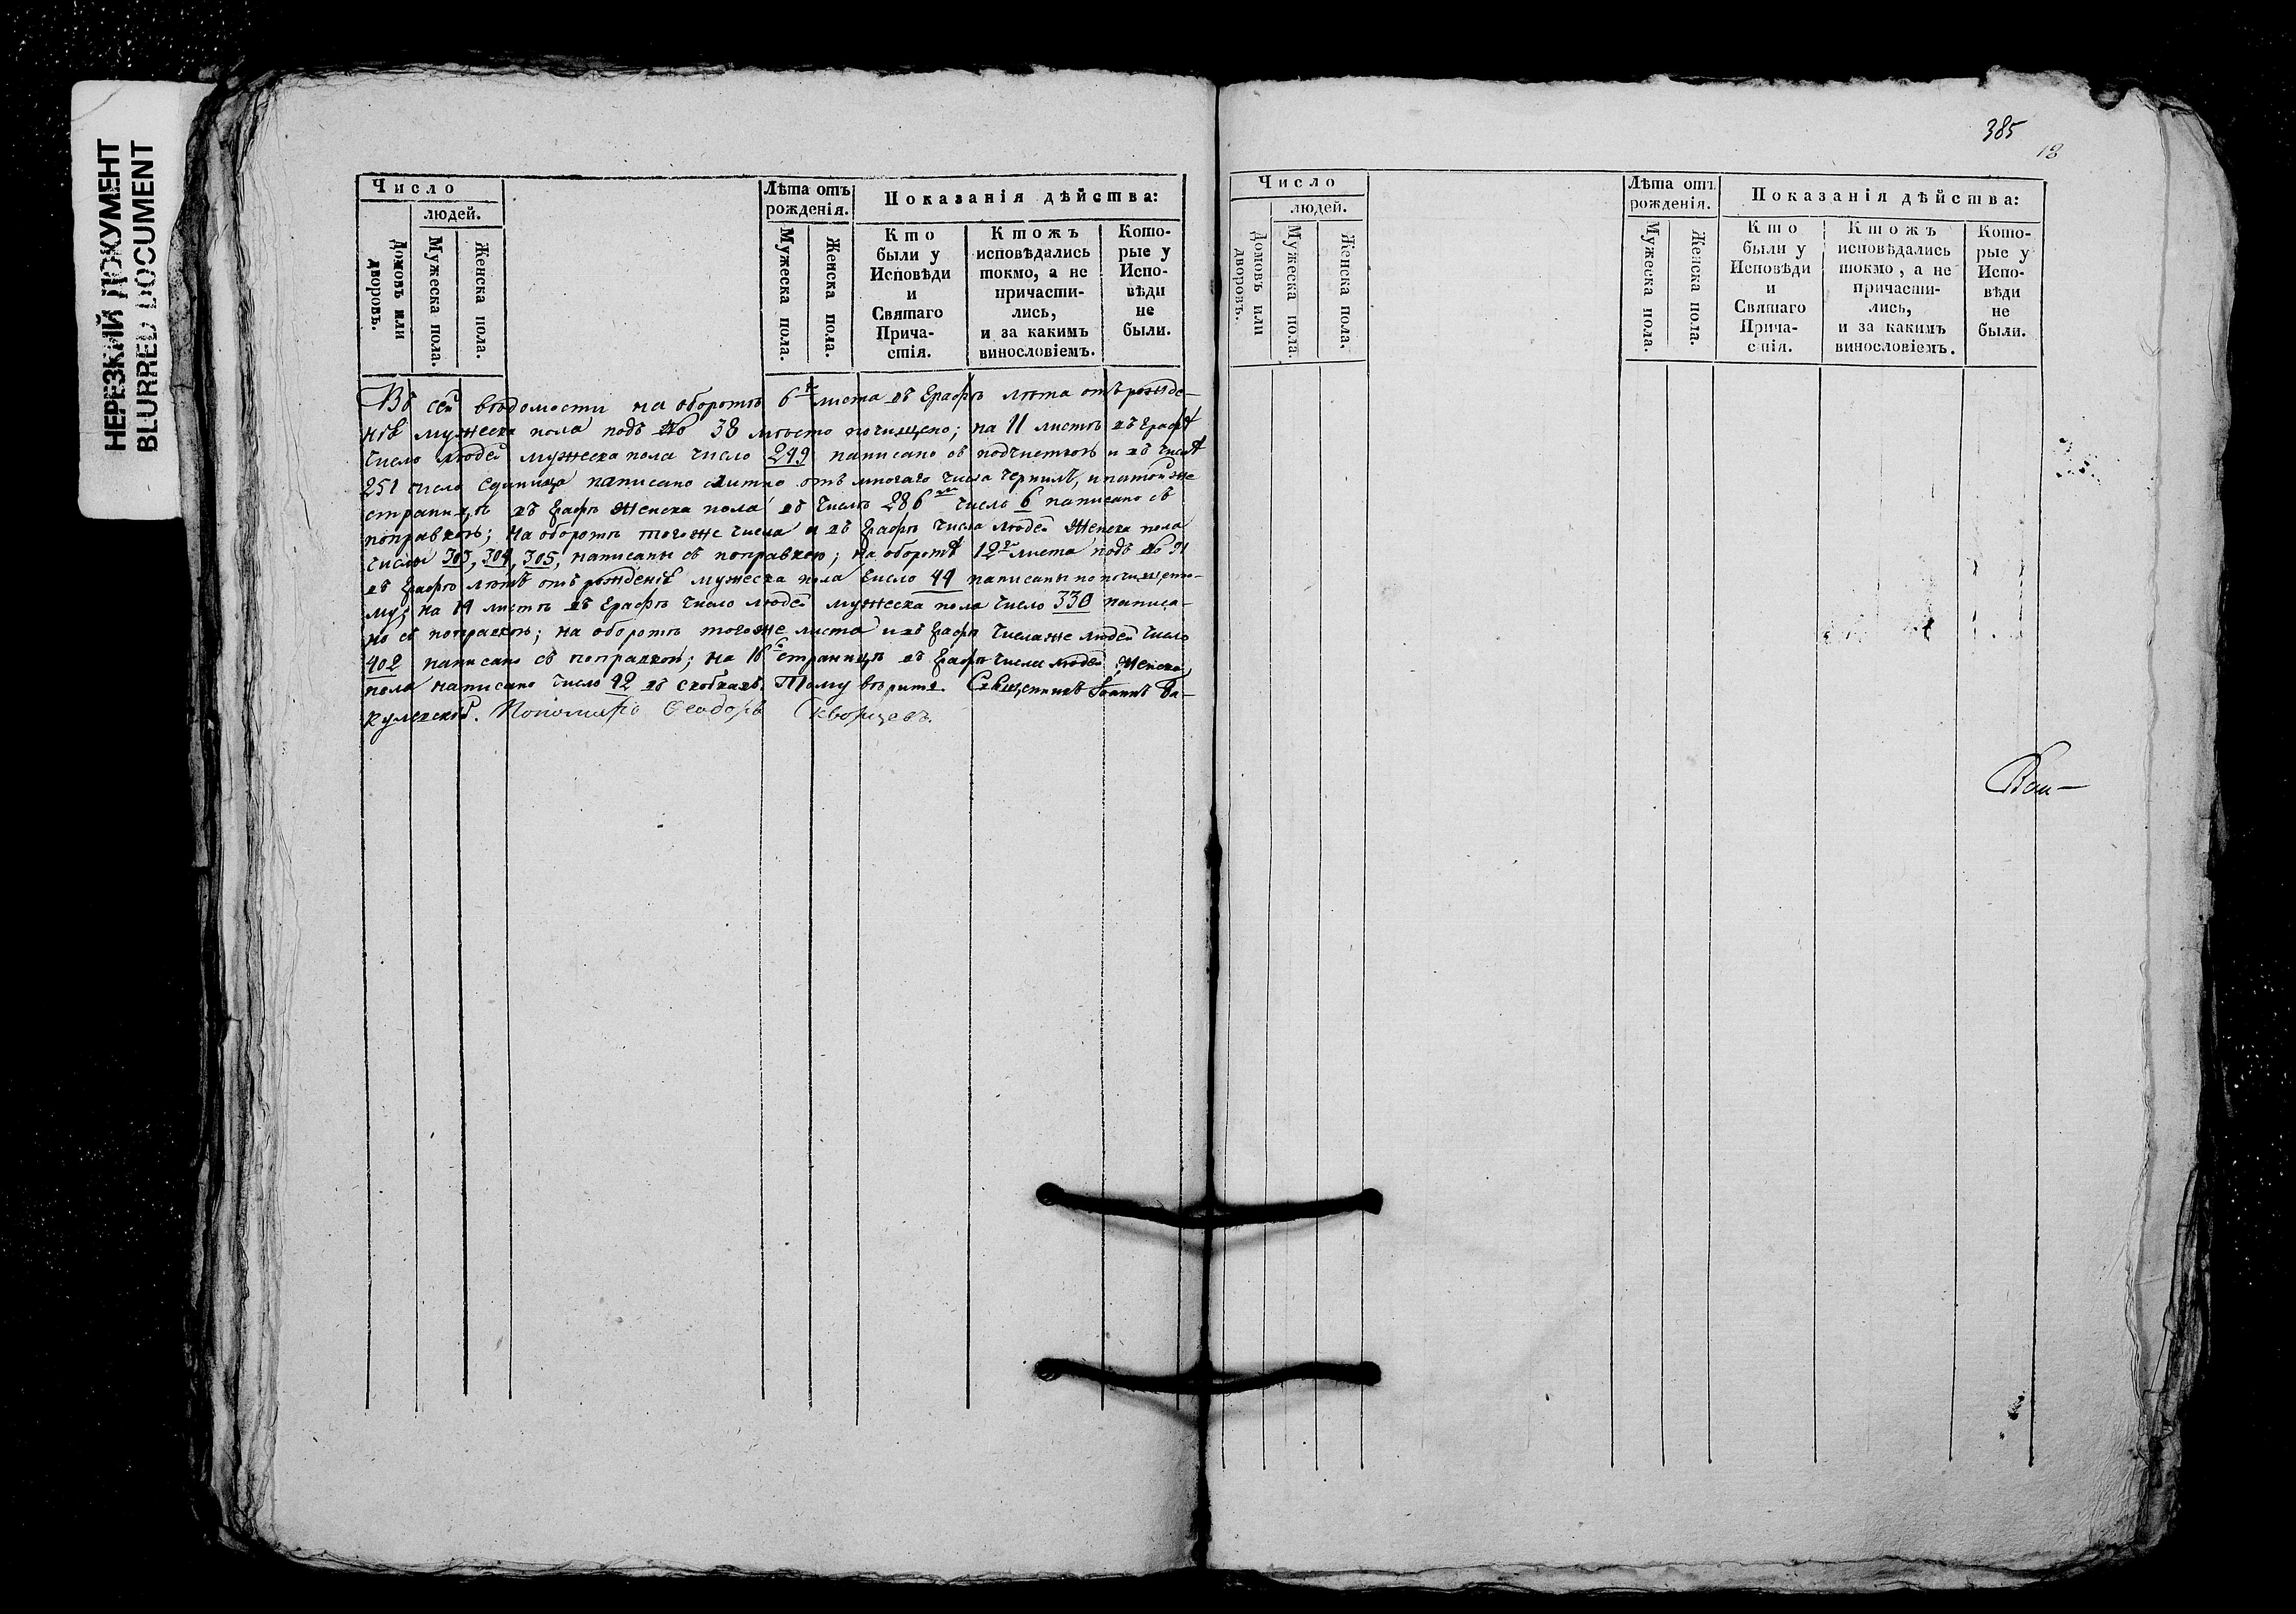 НЕРЕЗКИЙ ДОКУМЕНТ
BLURRED DOCUMENT
Число
людей.
Домовъ или дворовъ.
Мужеска пола.
Женска пола.
Лѣта отъ рожденія.
Мужеска пола.
Женска пола.
Показанія дѣйства:
Кто были у Исповѣди и Святаго Прича-стія.
Ктожъ исповѣдались токмо, а не причасти-лись, и за какимъ винословіемъ.
Кото-рые у Испо-вѣди не были.
Въ сей вѣдомости на оборотѣ 6го листа въ графѣ лѣта отъ рожде-
нія мужеска пола подъ № 38 мѣсто почищено; на 11 листѣ въ графѣ
число людей мужеска пола число 249 написано съ подчисткою и въ числѣ
251 число единица написано слитно отъ многаго числа чернилъ, и на той же
страницѣ въ графѣ женска пола въ числѣ 286 число 6 написано съ
поправкою; на оборотѣ тогоже числа и въ графѣ числа людей женска пола
числы 303, 304, 305, написаны съ поправкою; на оборотѣ 12го листа подъ № 91
въ графѣ лѣтъ отъ рожденія мужеска пола число 44 написаны по почищенно-
му; на 14 листѣ въ графѣ число людей мужеска пола число 330 написа-
но съ поправкою; на оборотѣ тогоже листа и въ графѣ числа же людей число
402 написано съ поправкою; на 16й страницѣ въ графѣ числа людей женска
пола написано число 42 въ скобкахъ. Тому вѣрить. Священникъ Іоаннъ Ба-
кулевской. Пономарь Ѳеодоръ Скворцовъ.
385
18
Число
людей.
Домовъ или дворовъ.
Мужеска пола.
Женска пола.
Лѣта отъ рожденія.
Мужеска пола.
Женска пола.
Показанія дѣйства:
Кто были у Исповѣди и Святаго Прича-стія.
Ктожъ исповѣдались токмо, а не причасти-лись, и за какимъ винословіемъ.
Кото-рые у Испо-вѣди не были.